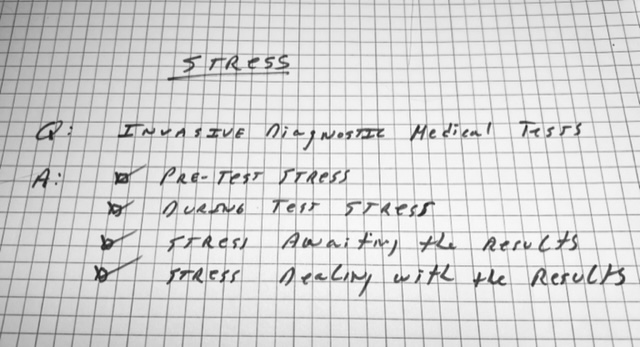 STRESS
Q: INVASIVE DIAGNOSTIC MEDICAL TESTS
A: PRE-TEST STRESS
DURING TEST STRESS
STRESS AWAITING the RESULTS
STRESS DEALING with the RESULTS